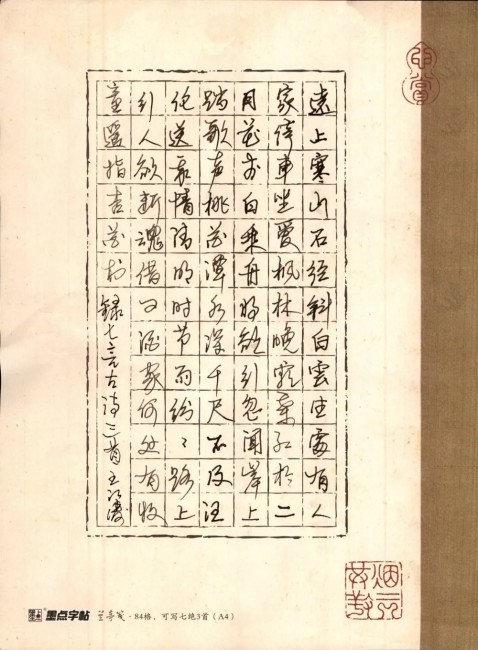 遠上寒山石径斜白雲生處有人
家停車坐愛楓林晚霜葉红於二
月花李白乘舟将欲行忽聞岸上
踏歌声桃花潭水深千尺不及汪
伦送我情清明时节雨纷〻路上
行人欲断魂借问酒家何处有牧
童遥指杏花村 録七言古诗三首 王江涛
墨点字帖 兰亭笺·84格，可写七绝3首（A4）